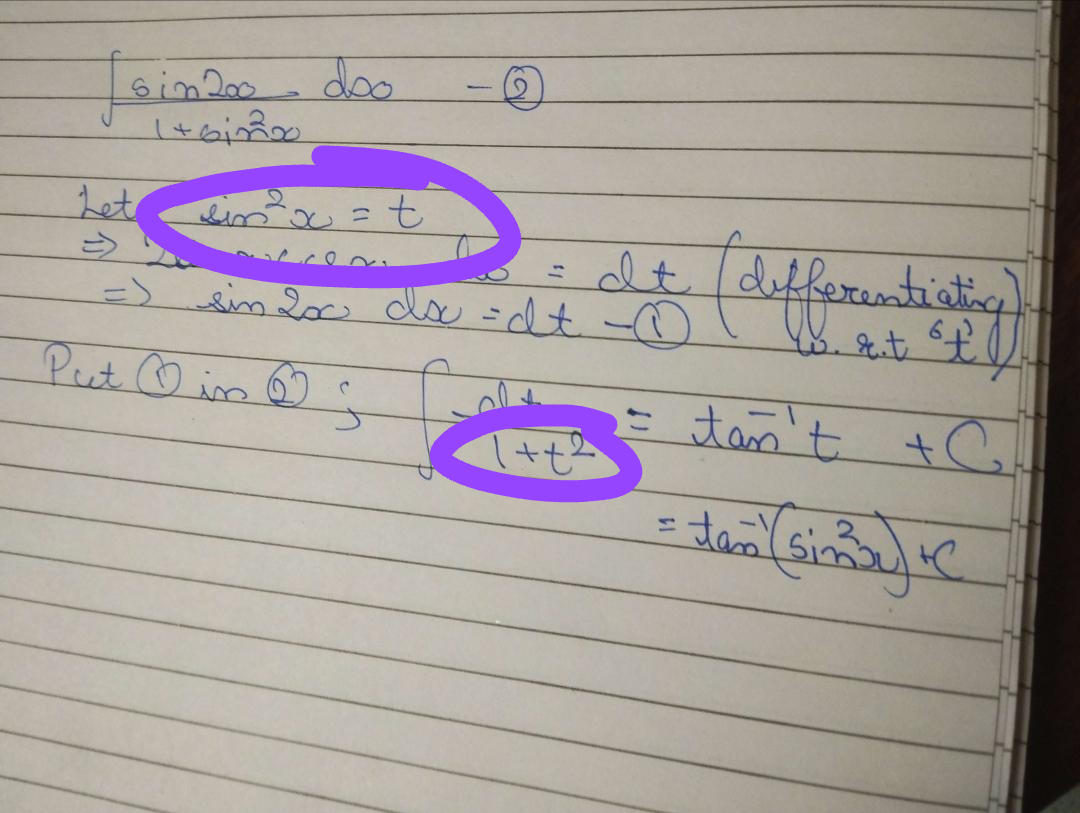 ∫ sin2x/1+sin²x dx - ②
Let sin²x = t
=> dx = dt (differentiating w.r.t 't')
=> sin2x dx = dt - ①
Put ① in ② ; ∫ dt/1+t² = tan⁻¹t + C
= tan⁻¹(sin²x) + C